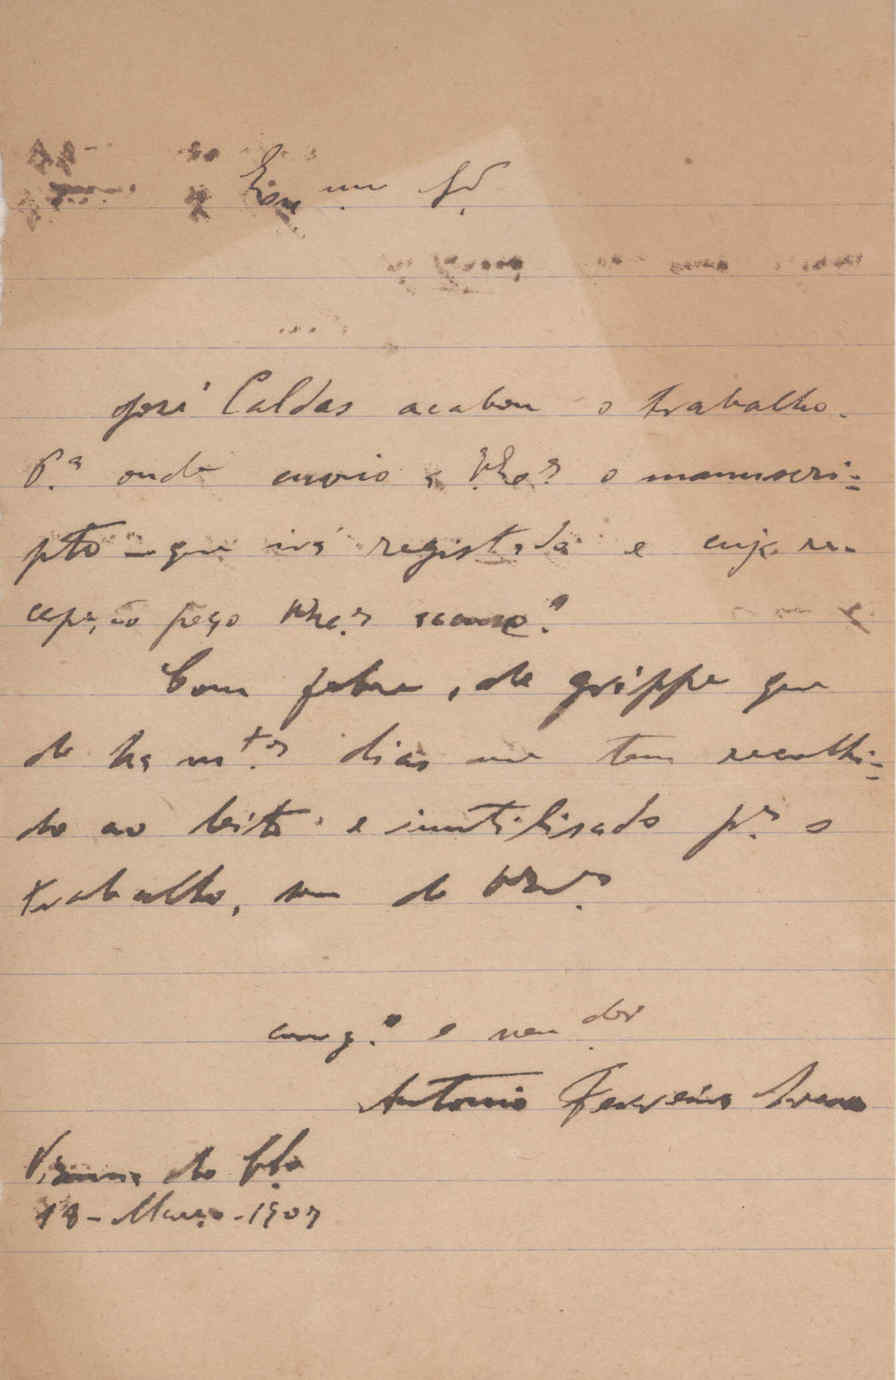 Exmo Sr.
José Caldas acabou o trabalho.
P.ª onde envio a V. Ex.ª o manuscri-
pto - que irá registado e cuja re-
cepção peço
Com febre, de grippe que
de ha m.tos dias me tem recolhi-
do ao leito e inutilisado p.ª o
trabalho, sou de
am.º e ven.dor
Antonio Ferreira
Vianna do Cast.º
18 - Março - 1907